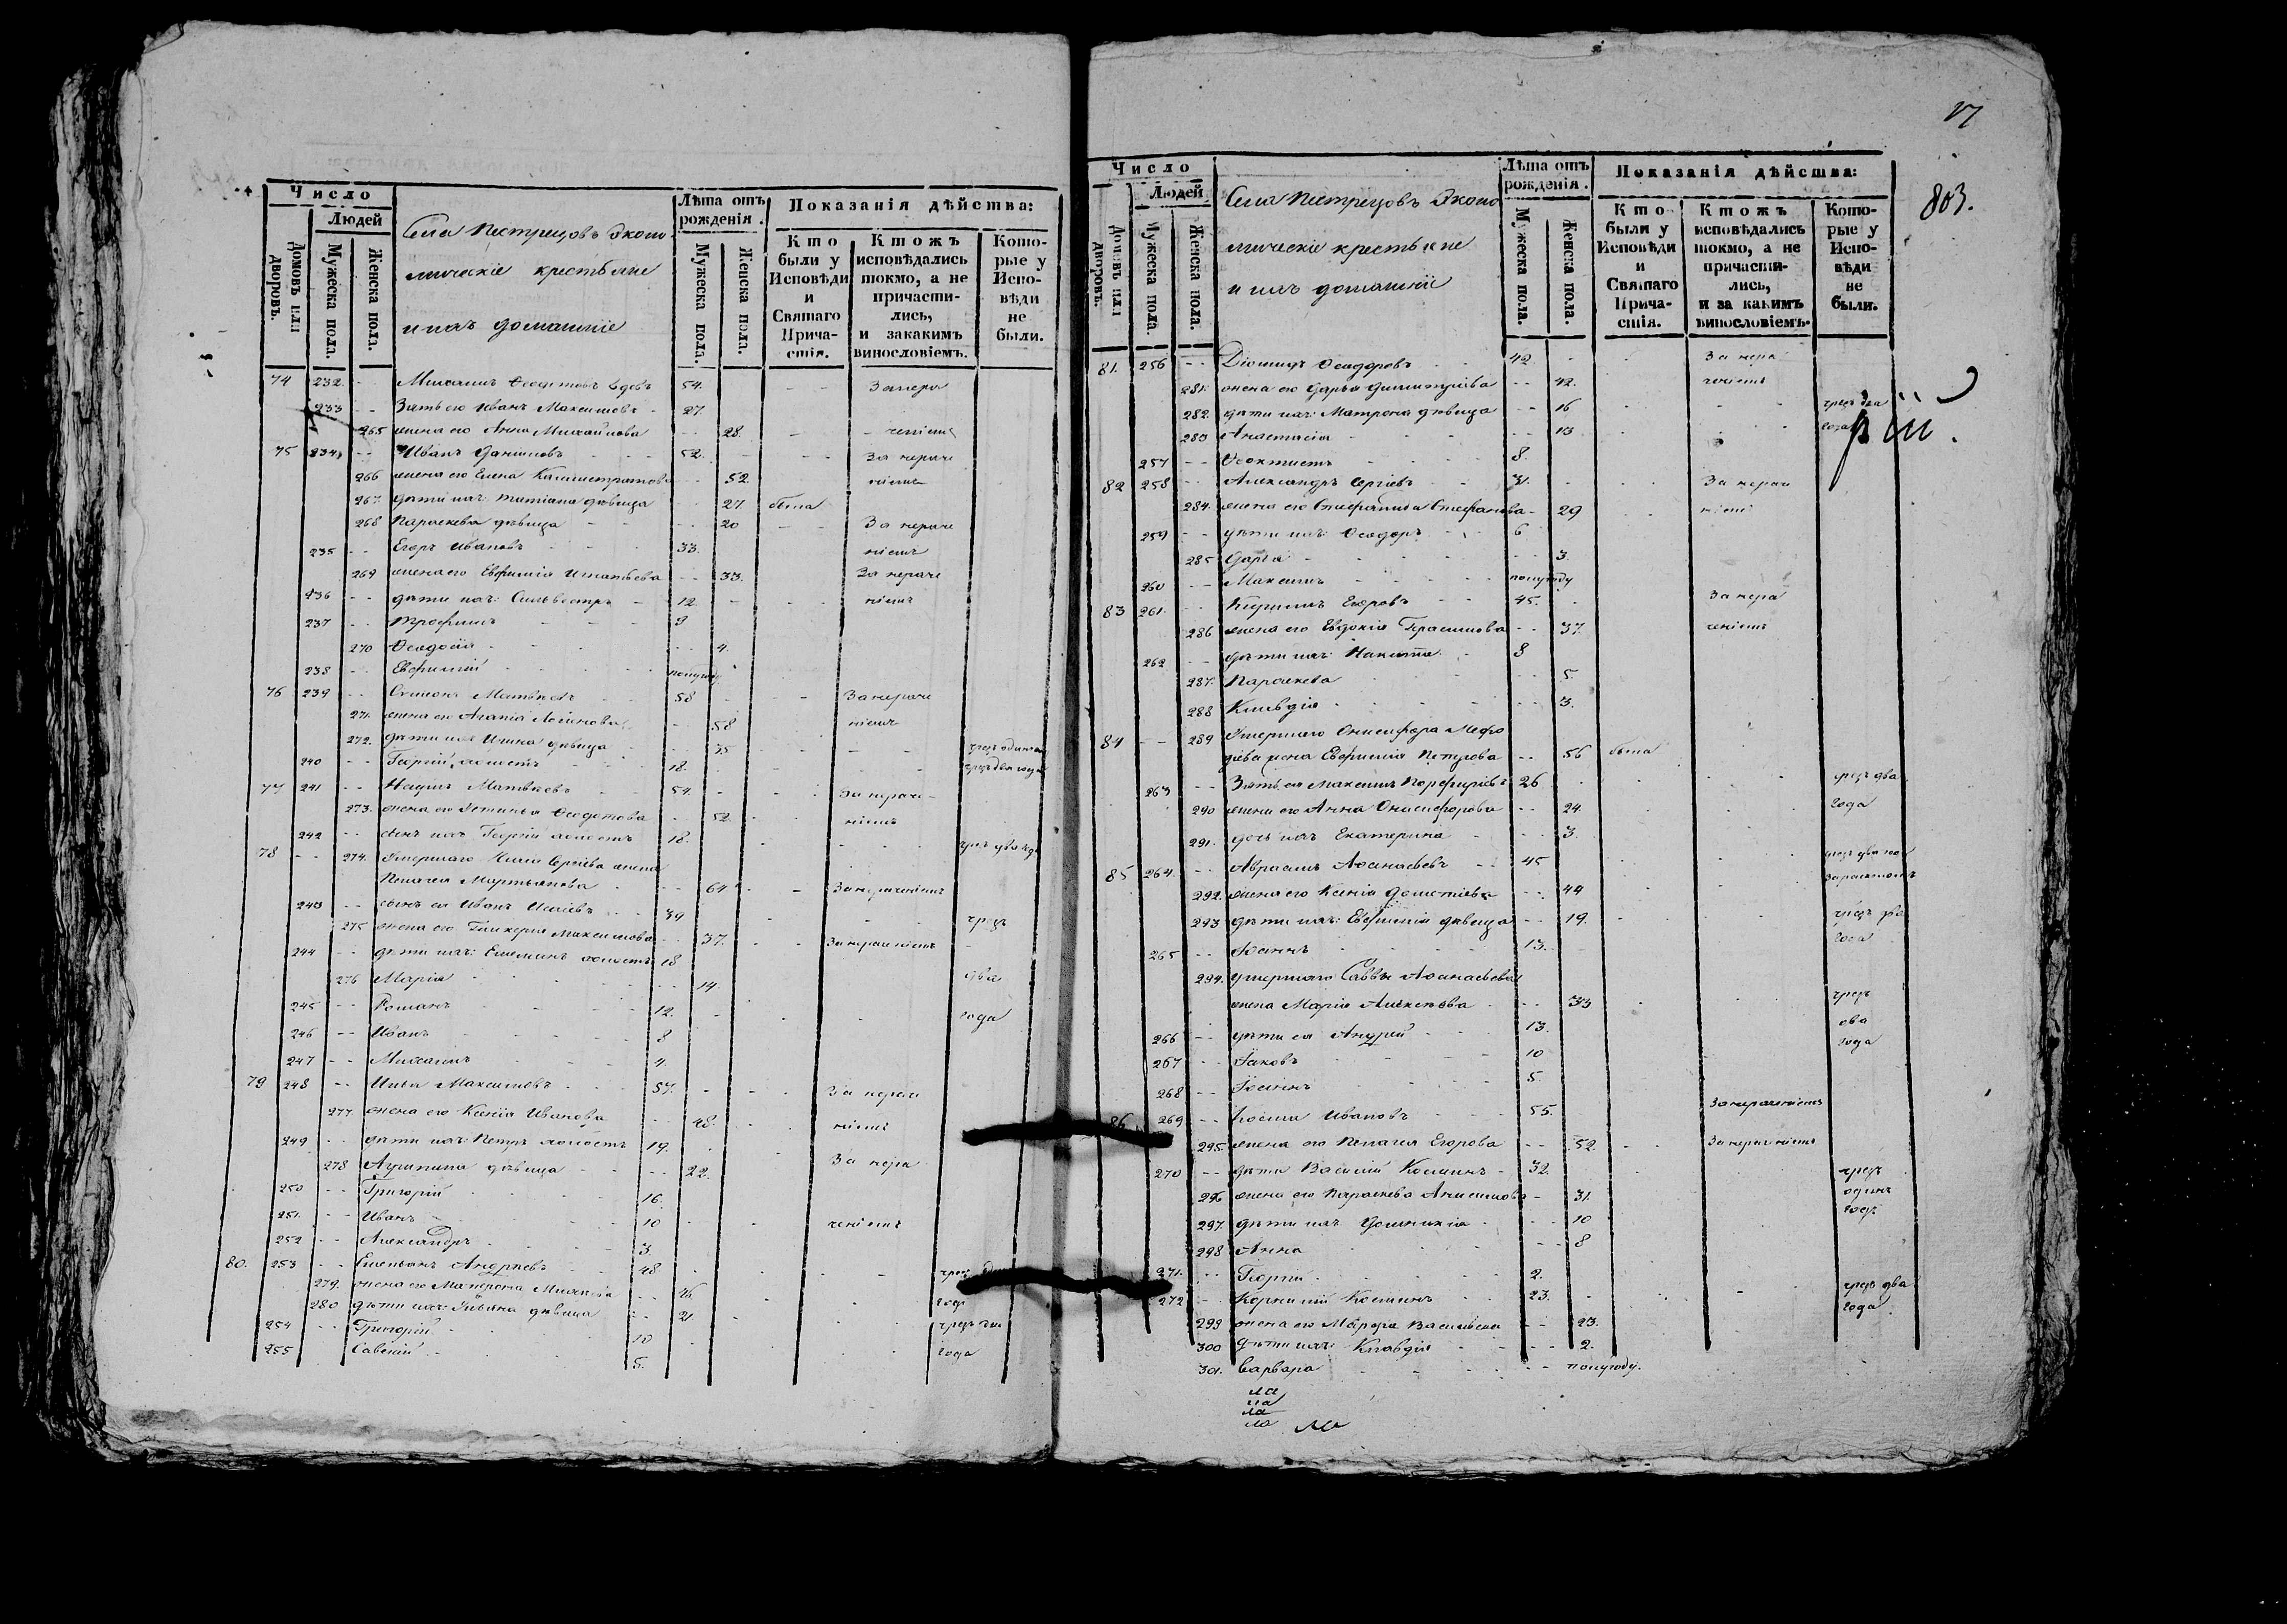 Число
Людей
Домовъ или дворовъ.
Мужеска пола.
Женска пола.
Села Пестрецовъ Эконо
мическіе крестьяне
и ихъ домашніе
Лѣта отъ рожденія.
Мужеска пола.
Женска пола.
Показанія дѣйства:
Кто были у Исповѣди и Святаго Причастія.
Ктожъ исповѣдались токмо, а не причастились, и закакимъ винословіемъ.
Которые у Исповѣди не были.
74 232. Михаилъ Ѳедотовъ вдовъ 54. За нера
233 Зять его Иванъ Максимовъ 27.
265 жена его Анна Михайлова 28. ченіемъ
75 234 Иванъ Даниловъ 52. За нераче
266 жена его Елена Калистратова 52 ніемъ
267. дѣти ихъ: Татіана дѣвица 27. была
268 Параскева дѣвица 20 За нераче
235 Егоръ Ивановъ 33. ніемъ
269 жена его Евфимія Игнатьева 33. За нераче
236 дѣти ихъ: Сильвестръ 12. ніемъ
237 Трофимъ 9
270 Ѳеодосія 4.
238 Евфимій полугоду
76 239 Симеонъ Матвѣевъ 58 За нераче
271. жена его Агапія Логинова 58 ніемъ
272. дѣти ихъ Ирина дѣвица 35
240 Георгій холостъ 18. чрезъ два года
77 241 Наумъ Матвѣевъ 54. За нераче
273. жена его Устинья Ѳедотова 52. ніемъ
242 сынъ ихъ Георгій холостъ 18. чрезъ два года
78 274. Умершаго Исаіи Сергѣева жена
Пелагея Мартьянова 64 За нераченіемъ
243 сынъ ея Иванъ Исаіевъ 39 чрезъ
275 жена его Гликерія Максимова 37. За нераченіемъ
244 дѣти ихъ: Емеліанъ холостъ 18
276 Марія 14. два
245 Романъ 12. года
246 Иванъ 8
247 Михаилъ 4.
79 248 Илья Максимовъ 57. За нераче
277. жена его Ксенія Иванова 48. ніемъ
249 дѣти ихъ: Петръ холостъ 19.
278 Агрипина дѣвица 22. За нера
250 Григорій 16.
251. Иванъ 10 ченіемъ
252 Александръ 3.
80. 253 Емельянъ Андреевъ 48 чрезъ
279. жена его Матрона 46 года
280 дѣти ихъ: дѣвица 21
254 Григорій 10 чрезъ два
255 Савелій 5. года
17
803.
Число
Людей
Домовъ или дворовъ.
Мужеска пола.
Женска пола.
Села Пестрецовъ Эконо
мическіе крестьяне
и ихъ домашніе
Лѣта отъ рожденія.
Мужеска пола.
Женска пола.
Показанія дѣйства:
Кто были у Исповѣди и Святаго Причастія.
Ктожъ исповѣдались токмо, а не причастились, и за какимъ винословіемъ.
Которые у Исповѣди не были.
81. 256 Діомидъ Ѳедоровъ 42. За нера
281. жена его Дарья Димитріева 42. ченіемъ
282. дѣти ихъ: Матрона дѣвица 16 чрезъ два
283 Анастасія 13 года
257 Ѳеоктистъ 8.
82 258 Александръ Сергіевъ 31. За нераче
284. жена его Степанида Стефанова 29 ніемъ
259 дѣти ихъ: Ѳеодоръ 6
285 Дарія 3.
260 Максимъ полугоду
83 261. Кирилъ Егоровъ 45. За нера
286 жена его Евдокія Герасимова 37. ченіемъ
262 дѣти ихъ: Никита 8
287. Параскева 5
288 Клавдія 3.
84 289 Умершаго Онисифора Мефо
діева жена Евфимія Петрова 56 была
263 Зять ея Максимъ Порфиріевъ 26 чрезъ два
290 жена его Анна Онисифорова 24. года
291. дочь ихъ Екатерина 3.
85 264. Авраамъ Аѳанасьевъ 45 чрезъ два года
292. жена его Ксенія 44
293 дѣти ихъ: Евфимія дѣвица 19. чрезъ два
265 Іоаннъ 13. года
294. Умершаго Саввы Аѳанасьева
жена Марія Алексѣева 33 чрезъ
266 дѣти ея Андрей 13. два
267 Іаковъ 10 года
268 Іоаннъ 5.
86 269 Косма Ивановъ 55. За нераченіемъ
295. жена его Пелагея Егорова 52. За нераченіемъ
270 дѣти Василій Косминъ 32. чрезъ
296 жена его Параскева Анисимова 31. одинъ
297. дѣти ихъ Домникія 10 годъ
298 Анна 8
271. Георгій 2.
272 Корнилій Косминъ 23. чрезъ два
299 жена его Марфа Васильева 23. года
300 дѣти ихъ: Клавдія 2.
301. Варвара полугоду.